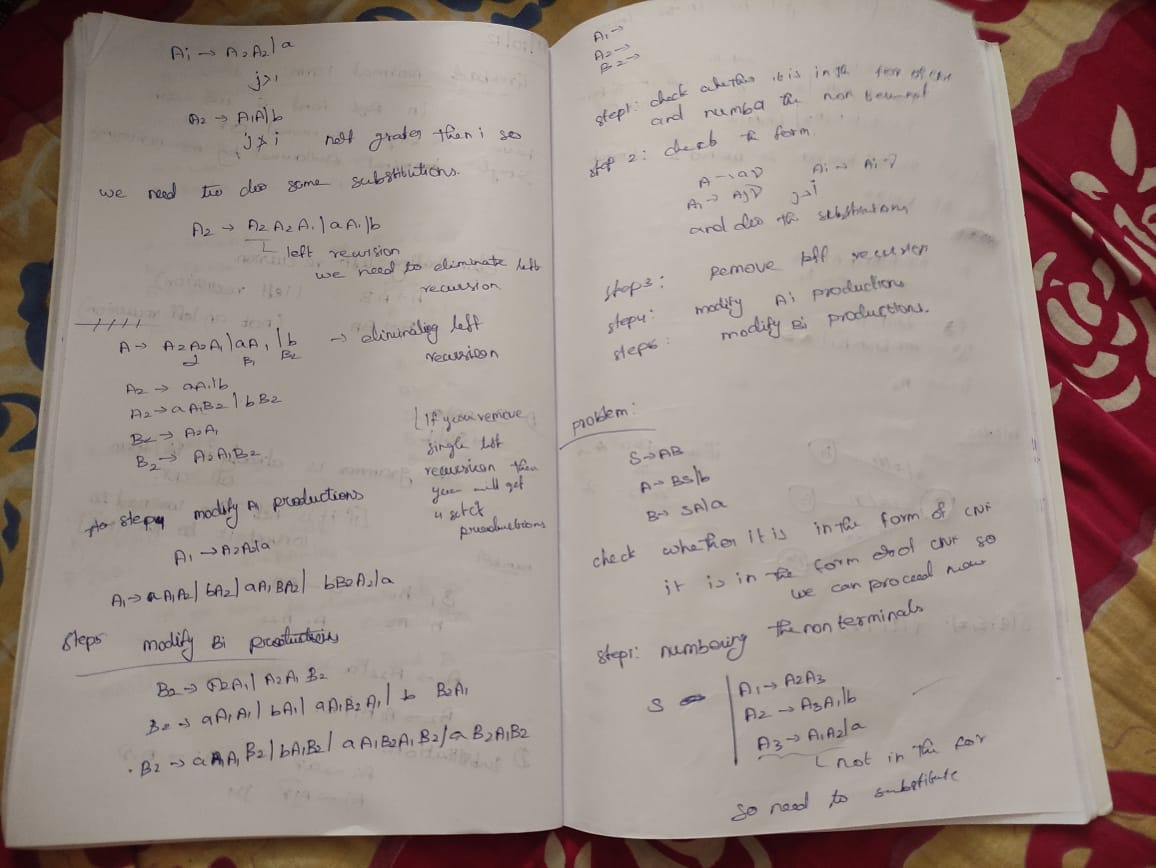 Ai → A2A2|a
j>i
A2 → A1A1|b
j≯i not grater then i so
we need to doo some substitutions.
A2 → A2A2A1|aA1|b
left recursion
we need to eliminate left
recursion
A → A2A2A1|aA1|b → eliminating left
B1 B2 recursion
A2 → aA1|b
A2 → aA1B2|bB2
B2 → A2A1
B2 → A2A1B2
[If you remove
single left
recursion then
you will get
4 set of
productions
step4 modify A1 productions
A1 → A2A2|a
A1 → aA1A2|bA2|aA1BA2|bB2A2|a
Step5 modify Bi productions
B2 → A2A1|A2A1B2
B2 → aA1A1|bA1|aA1B2A1|b B2A1
B2 → aA1A1B2|bA1B2|aA1B2A1B2|aB2A1B2
A1→
A2→
B2→
step1: check whether it is in the form of CNF
and number the non terminal
step 2: check the form
A → aD Ai → Ai D
Ai → AjD j>i
and doo the substitutions
step3: Remove left recursion
step4: modify Ai productions
step5: modify Bi productions.
problem:
S→AB
A→BS|b
B→SA|a
check whether it is in the form of CNF
it is in the form of CNF so
we can proceed now
step1: numbering the non terminals
S A1→A2A3
A2→A3A1|b
A3→A1A2|a
not in the for
so need to substitute